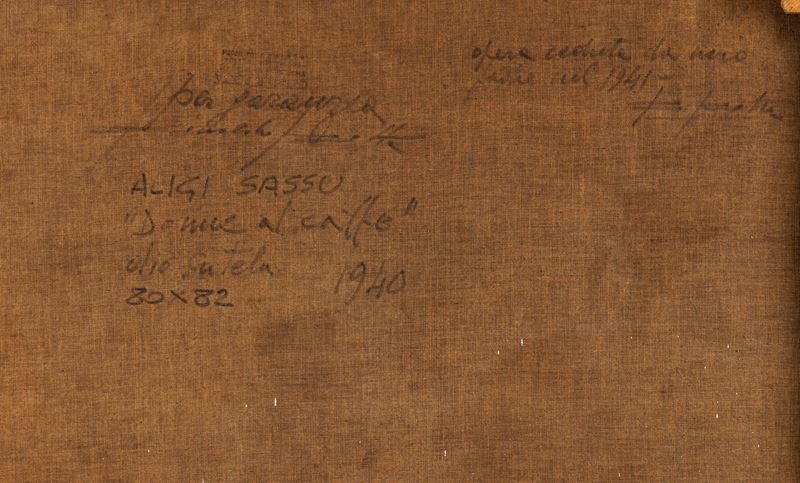 opera ceduta da mio
padre nel 1941
per garanzia
ALIGI SASSU
"Donne al caffe"
olio su tela 1940
80X82